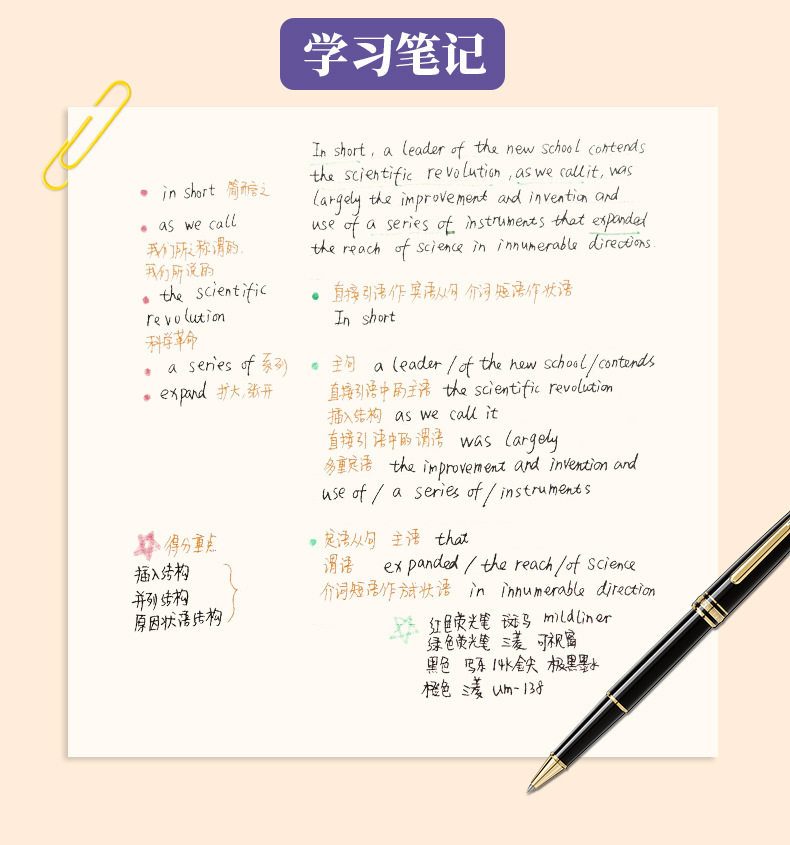 学习笔记
In short, a leader of the new school contends
the scientific revolution, as we call it, was
largely the improvement and invention and
use of a series of instruments that expanded
the reach of science in innumerable directions.
in short 简而言之
as we call
我们所之称谓的.
我们所说的
the scientific
revolution
科学革命
a series of 系列
expand 扩大,张开
得分重点
插入结构
并列结构
原因状语结构
直接引语作宾语从句 介词短语作状语
In short
主句 a leader/of the new school/contends
直接引语中的主语 the scientific revolution
插入结构 as we call it
直接引语中的谓语 was largely
多重宾语 the improvement and invention and
use of/a series of/instruments
定语从句 主语 that
谓语 expanded/the reach/of science
介词短语作方式状语 in innumerable direction
红色荧光笔 斑马 mildliner
绿色荧光笔 三菱 可视窗
黑色 写乐 14k金尖 极黑墨水
橙色 三菱 um-138